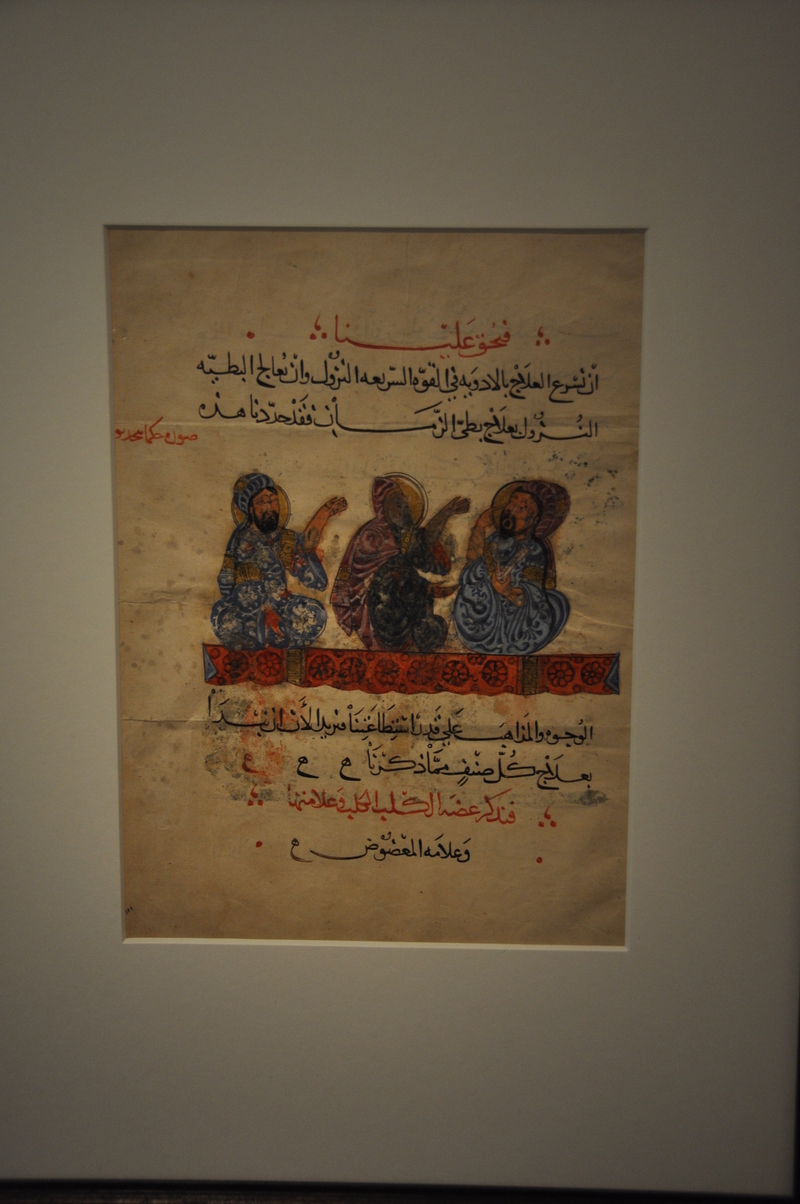 فحق علينا
ان نسرع العلاج بالادويه في القوه السريعه النزول وان نعالج البطيه
النزول بعلاج بطئ الزمان فقد حددنا هذه
صوره حكما
الوجوه والمذاهب علي قدر استطاعتنا فنريد الأن ان نبدأ
بعلاج كل صنف مما ذكرنا
فنذكر عضه الكلب الكلب وعلامتها
وعلامه المعضوض